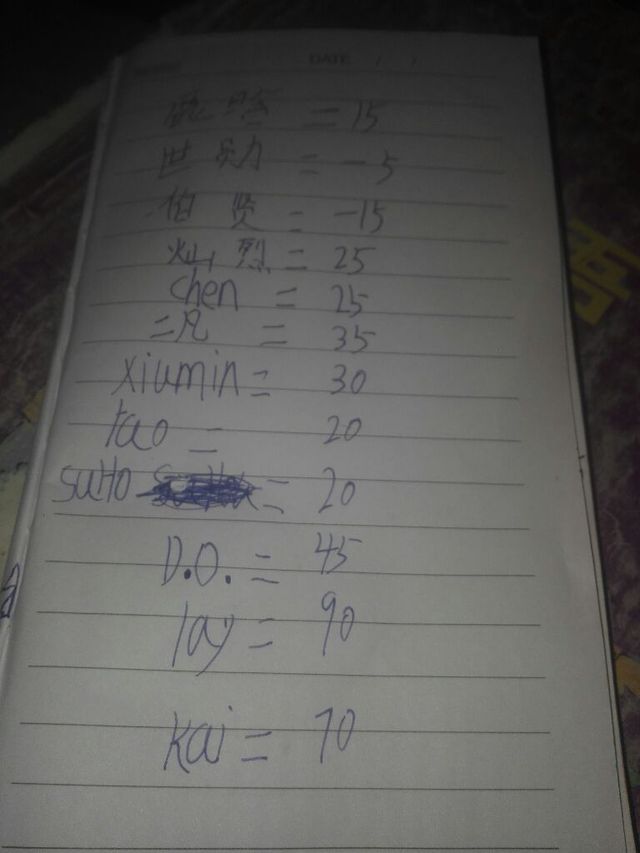 DATE / /
鹿晗 = 15
世勋 = -5
伯贤 = -15
灿烈 = 25
chen = 25
二凡 = 35
xiumin = 30
tao = 20
suHo = 20
D.O. = 45
lay = 90
kai = 70